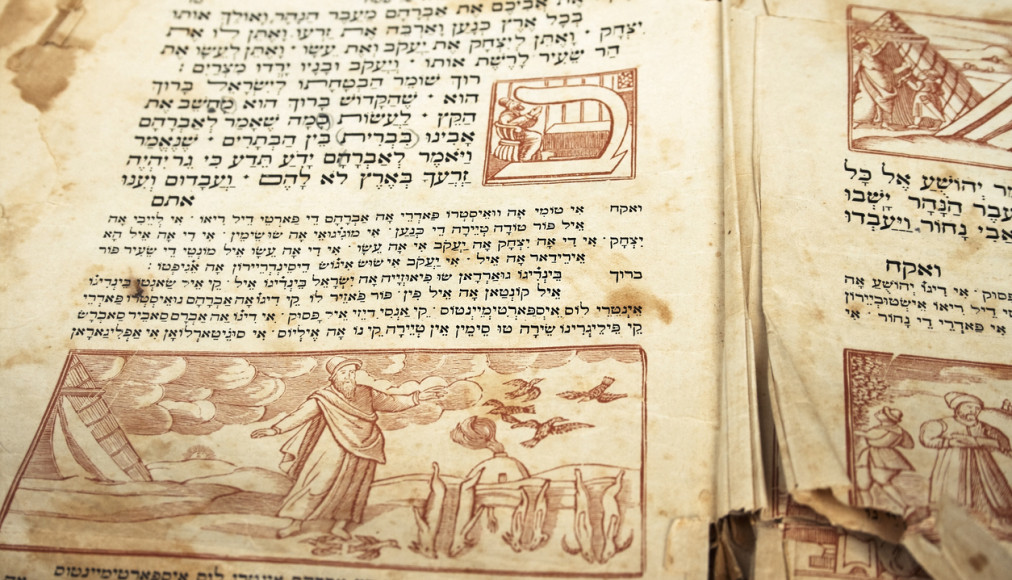 את אביכם את אברהם מעבר הנהר ואולך אותו
בכל ארץ כנען וארבה את זרעו ואתן לו את
יצחק · ואתן ליצחק את יעקב ואת עשו · ואתן לעשו את
הר שעיר לרשת אותו · ויעקב ובניו ירדו מצרים :
רוך שומר הבטחתו לישראל ברוך
הוא · שהקדוש ברוך הוא מחשב את
הקץ · לעשות כמה שאמר לאברהם
אבינו בברית בין הבתרים · שנאמר
ויאמר לאברהם ידע תדע כי גר יהיה
זרעך בארץ לא להם · ועבדום וענו
אתם
ואקח אי טומי אה וואיסטרו פאדרי אה אברהם די פארטי דיל ריאו · אי לייבי אה
איל פור טודה טיירה די כנען · אי מוגיגואי אה שושימין · אי די אה איל הא
יצחק · אי די אה יצחק אה יעקב אי אה עשו · אי די אה עשו איל מונטי די שעיר פור
אירידאר אה איל · אי יעקב אי שוש איגוש דיסינדריירון אה אגיפטו :
ברוך בינדיגו גוארדאן שו פיאוזייה אה ישראל בינדיגו איל · קי איל שאנטו בינדיגו
איל קונטאן אה איל פין · פור פאזיר לו קי דיגו אה אברהם גואיסטרו פאדרי
אינטרי לוס איספארטימיינטוס · קי אנסי דיזי איל פסוק · אי דיגו אה אברם סאביר סאברש
קי פיליגרינו שירה טו סימין אין טיירה קי נו אה אליוס · אי סוגיטארלואן אי אפליגאראן
ר יהושע אל כל
עבר הנהר ישבו
אבי נחור ויעבדו
ואקח
פסוק · אי דיגו יהושע אה
ריאו אישטובירון
אי פאדרי די נחור · אי
אינטרי לוס איספארטימיינטוס